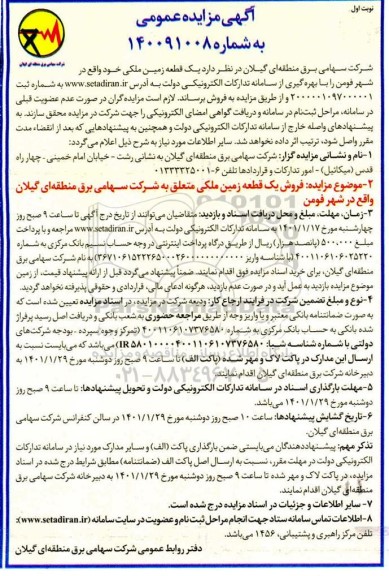 نوبت اول
آگهی مزایده عمومی
به شماره ۱۴۰۰۹۱۰۰۸
شرکت سهامی برق منطقه‌ای گیلان
شرکت سهامی برق منطقه‌ای گیلان در نظر دارد یک قطعه زمین ملکی خود واقع در
شهر فومن را با بهره‌گیری از سامانه تدارکات الکترونیکی دولت به آدرس www.setadiran.ir به شماره ثبت
و از طریق مزایده به فروش برساند. لازم است مزایده‌گران در صورت عدم عضویت قبلی
در سامانه، مراحل ثبت‌نام در سامانه و دریافت گواهی امضای الکترونیکی را جهت شرکت در مزایده محقق سازند. به
پیشنهادهای واصله خارج از سامانه تدارکات الکترونیکی دولت و همچنین به پیشنهادهایی که بعد از انقضاء مدت
مقرر واصل شود، ترتیب اثر داده نخواهد شد. سایر اطلاعات مورد نیاز به شرح ذیل اعلام می‌گردد:
۱-نام و نشانی مزایده گزار: شرکت سهامی برق منطقه‌ای گیلان به نشانی رشت - خیابان امام خمینی - چهار راه
قدس (میکائیل) - امور تدارکات و قراردادها تلفن ۶-۰۱۳۳۳۳۲۵۰۰۱
۲-موضوع مزایده: فروش یک قطعه زمین ملکی متعلق به شرکت سهامی برق منطقه‌ای گیلان
واقع در شهر فومن
۳-زمان، مهلت، مبلغ و محل دریافت اسناد و بازدید: متقاضیان می‌توانند از تاریخ درج آگهی تا ساعت ۹ صبح روز
چهارشنبه مورخ ۱۴۰۱/۱/۱۷ به سامانه تدارکات الکترونیکی دولت به آدرس www.setadiran.ir مراجعه و با پرداخت
مبلغ ۵۰۰,۰۰۰ (پانصد هزار) ریال از طریق درگاه پرداخت اینترنتی در وجه حساب سیبا بانک مرکزی به شماره
به نام شرکت سهامی برق
منطقه‌ای گیلان، برای خرید اسناد مزایده فوق اقدام نمایند. ضمناً پیشنهاد می‌گردد قبل از ارائه پیشنهاد قیمت، از زمین
موضوع مزایده بازدید به عمل آید و در صورت عدم بازدید، هرگونه ادعای مالی، قراردادی و حقوقی پذیرفته نخواهد گردید.
۴-نوع و مبلغ تضمین شرکت در فرایند ارجاع کار: ودیعه شرکت در مزایده، در اسناد مزایده تعیین شده است که
به صورت ضمانتنامه بانکی معتبر و یا واریز وجه از طریق مراجعه حضوری به شعب بانکی و دریافت اصل رسید پرفراژ
شده بانکی به حساب بانک مرکزی به شماره ۴۰۰۱۱۰۶۱۰۷۳۷۶۵۸۰ (تمرکز وجوه سپرده - بودجه شرکت‌های
دولتی با شماره شناسه شبا: IR ۵۸۰۱۰۰۰۰۴۰۰۱۱۰۶۱۰۷۳۷۶۵۸۰) می‌باشد که می‌بایست نسبت به
ارسال این مدارک در پاکت لاک و مهر شده (پاکت الف) تا ساعت ۹ صبح روز دوشنبه مورخ ۱۴۰۱/۱/۲۹ به
دبیرخانه شرکت برق منطقه‌ای گیلان اقدام نمایند.
۵-مهلت بارگذاری اسناد در سامانه تدارکات الکترونیکی دولت و تحویل پیشنهادها: تا ساعت ۹ صبح روز
دوشنبه مورخ ۱۴۰۱/۱/۲۹ می‌باشد.
۶-تاریخ گشایش پیشنهادها: ساعت ۱۰ صبح روز دوشنبه مورخ ۱۴۰۱/۱/۲۹ در سالن کنفرانس شرکت سهامی
برق منطقه‌ای گیلان.
تذکر مهم: پیشنهاددهندگان می‌بایستی ضمن بارگذاری پاکت (الف) و سایر مدارک مورد نیاز در سامانه تدارکات
الکترونیکی دولت در مهلت مقرر، نسبت به ارسال اصل پاکت الف (ضمانتنامه) مطابق شرایط درج شده در اسناد
مزایده، در پاکت لاک و مهر شده تا ساعت ۹ صبح روز دوشنبه مورخ ۱۴۰۱/۱/۲۹ به دبیرخانه شرکت سهامی برق
منطقه‌ای گیلان اقدام نمایند.
۷- سایر اطلاعات و جزئیات در اسناد مزایده درج شده است.
۸-اطلاعات تماس سامانه ستاد جهت انجام مراحل ثبت نام و عضویت در سایت سامانه (www.setadiran.ir):
تلفن مرکز راهبری و پشتیبانی، ۱۴۵۶ می‌باشد.
دفتر روابط عمومی شرکت سهامی برق منطقه‌ای گیلان